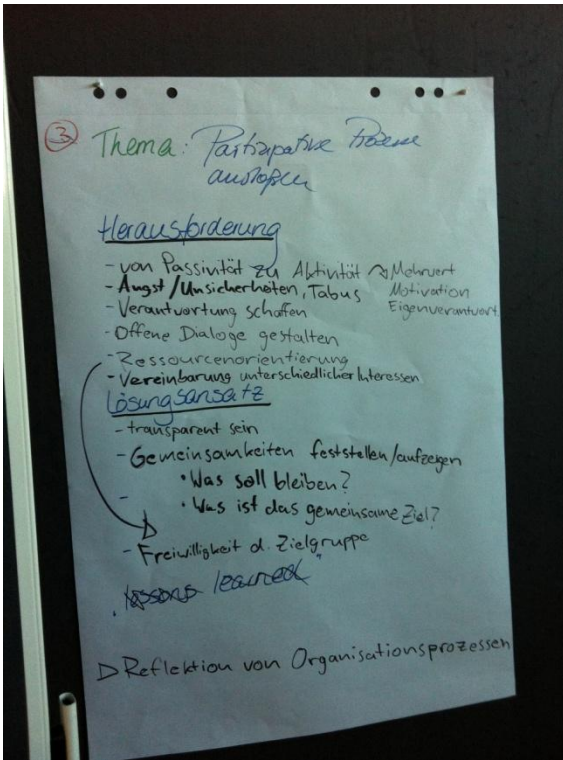 3 Thema: Partizipative Prozesse
auslösen
Herausforderung
- von Passivität zu Aktivität ↝ Mehrwert
- Angst/Unsicherheiten, Tabus Motivation
- Verantwortung schaffen Eigenverantwort.
- Offene Dialoge gestalten
- Ressourcenorientierung
- Vereinbarung unterschiedlicher Interessen
Lösungsansatz
- transparent sein
- Gemeinsamkeiten feststellen/aufzeigen
• Was soll bleiben?
- • Was ist das gemeinsame Ziel?
- Freiwilligkeit d. Zielgruppe
"lessons learned"
▷ Reflektion von Organisationsprozessen